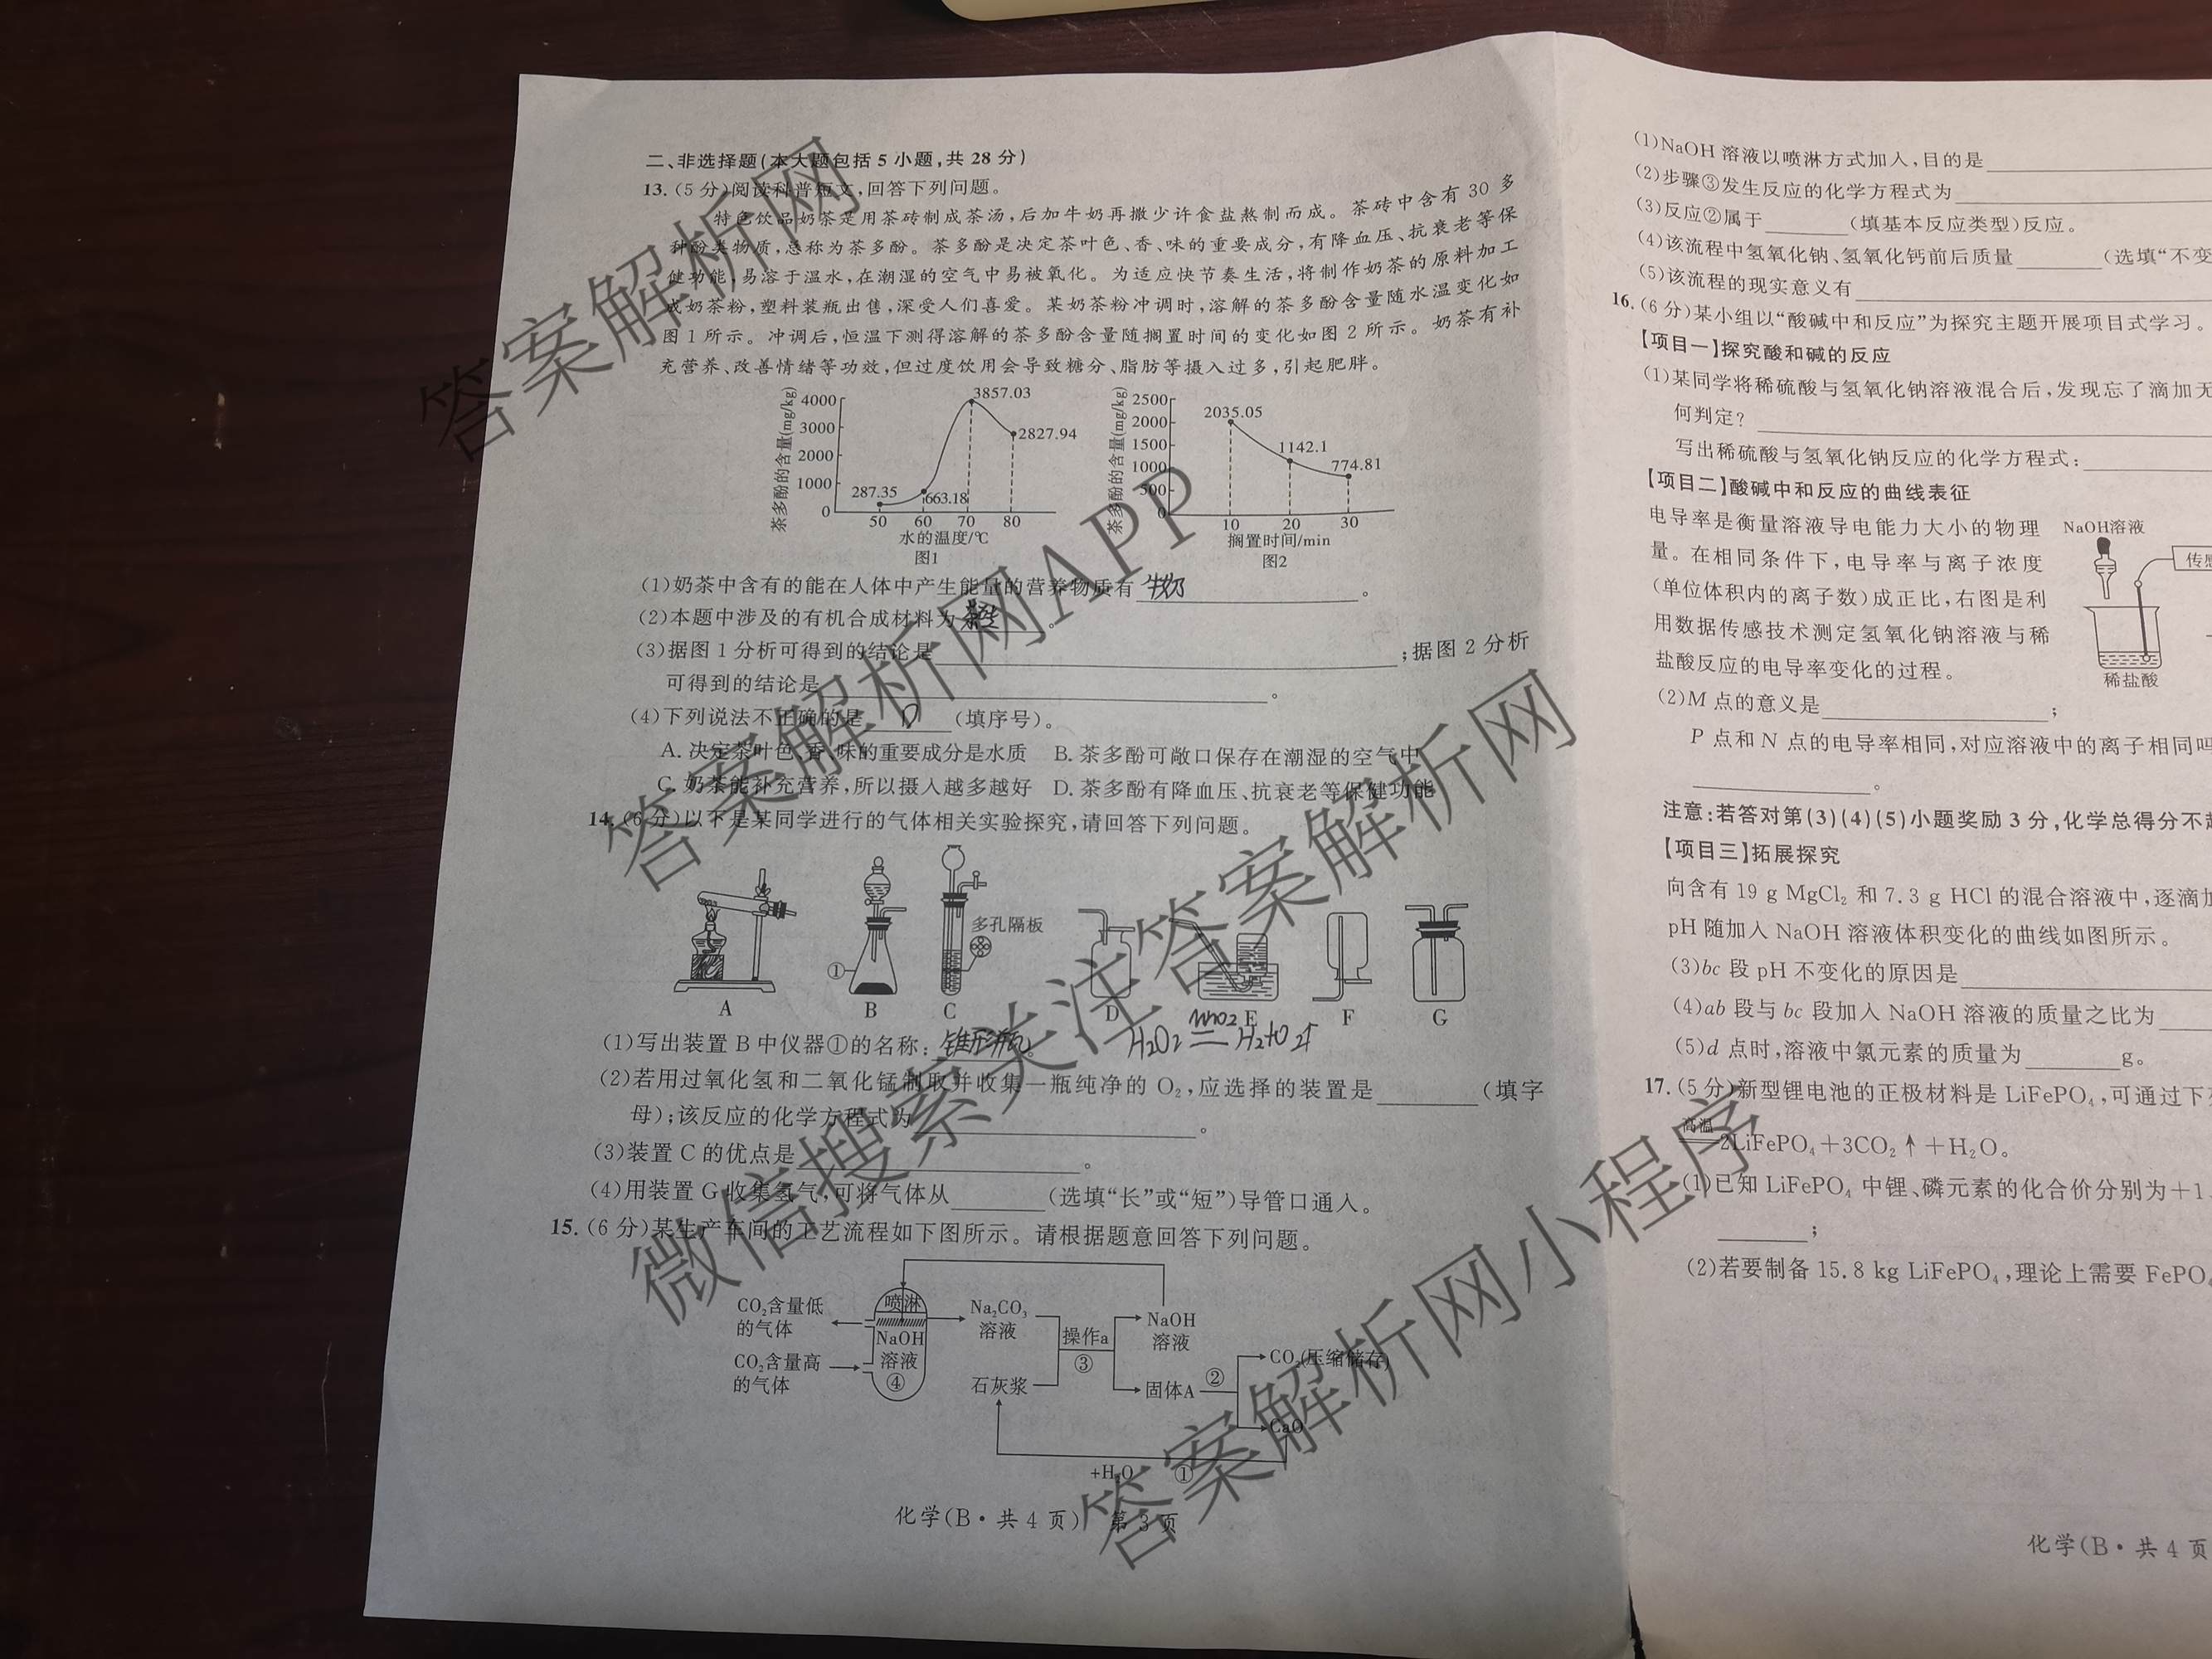 二、非选择题(本大题包括5小题,共28分)
13.(5分)阅读科普短文,回答下列问题。
特色饮品奶茶是用茶砖制成茶汤,后加牛奶再撒少许食盐熬制而成。茶砖中含有30多
种酚类物质,总称为茶多酚。茶多酚是决定茶叶色、香、味的重要成分,有降血压、抗衰老等保
健功能,易溶于温水,在潮湿的空气中易被氧化。为适应快节奏生活,将制作奶茶的原料加工
成奶茶粉,塑料装瓶出售,深受人们喜爱。某奶茶粉冲调时,溶解的茶多酚含量随水温变化如
图1所示。冲调后,恒温下测得溶解的茶多酚含量随搁置时间的变化如图2所示。奶茶有补
充营养、改善情绪等功效,但过度饮用会导致糖分、脂肪等摄入过多,引起肥胖。
茶多酚的含量(mg/kg)
4000
3000
2000
1000
0
287.35
663.18
3857.03
2827.94
50 60 70 80
水的温度/℃
图1
茶多酚的含量(mg/kg)
2500
2000
1500
1000
500
0
2035.05
1142.1
774.81
10 20 30
搁置时间/min
图2
(1)奶茶中含有的能在人体中产生能量的营养物质有 牛奶 。
(2)本题中涉及的有机合成材料为 。
(3)据图1分析可得到的结论是 ;据图2分析
可得到的结论是 。
(4)下列说法不正确的是 D (填序号)。
A.决定茶叶色、香、味的重要成分是水质 B.茶多酚可敞口保存在潮湿的空气中
C.奶茶能补充营养,所以摄入越多越好 D.茶多酚有降血压、抗衰老等保健功能
14.(6分)以下是某同学进行的气体相关实验探究,请回答下列问题。
①
多孔隔板
A B C D E F G
(1)写出装置B中仪器①的名称: 锥形瓶 。
H2O2 MnO2 H2+O2↑
(2)若用过氧化氢和二氧化锰制取并收集一瓶纯净的O₂,应选择的装置是 (填字
母);该反应的化学方程式为 。
(3)装置C的优点是 。
(4)用装置G收集氢气,可将气体从 (选填“长”或“短”)导管口通入。
15.(6分)某生产车间的工艺流程如下图所示。请根据题意回答下列问题。
CO₂含量低
的气体
CO₂含量高
的气体
喷淋
NaOH
溶液
④
Na₂CO₃
溶液
石灰浆
操作a
③
NaOH
溶液
固体A
②
CO₂(压缩储存)
CaO
+H₂O ①
化学(B·共4页) 第3页
(1)NaOH溶液以喷淋方式加入,目的是
(2)步骤③发生反应的化学方程式为
(3)反应②属于 (填基本反应类型)反应。
(4)该流程中氢氧化钠、氢氧化钙前后质量 (选填“不变
(5)该流程的现实意义有
16.(6分)某小组以“酸碱中和反应”为探究主题开展项目式学习。
【项目一】探究酸和碱的反应
(1)某同学将稀硫酸与氢氧化钠溶液混合后,发现忘了滴加无
何判定?
写出稀硫酸与氢氧化钠反应的化学方程式:
【项目二】酸碱中和反应的曲线表征
电导率是衡量溶液导电能力大小的物理
量。在相同条件下,电导率与离子浓度
(单位体积内的离子数)成正比,右图是利
用数据传感技术测定氢氧化钠溶液与稀
盐酸反应的电导率变化的过程。
NaOH溶液
传感
稀盐酸
(2)M点的意义是 ;
P点和N点的电导率相同,对应溶液中的离子相同吗
。
注意:若答对第(3)(4)(5)小题奖励3分,化学总得分不超
【项目三】拓展探究
向含有19 g MgCl₂和7.3 g HCl的混合溶液中,逐滴加
pH随加入NaOH溶液体积变化的曲线如图所示。
(3)bc段pH不变化的原因是
(4)ab段与bc段加入NaOH溶液的质量之比为
(5)d点时,溶液中氯元素的质量为 g。
17.(5分)新型锂电池的正极材料是LiFePO₄,可通过下列
高温
2LiFePO₄+3CO₂↑+H₂O。
(1)已知LiFePO₄中锂、磷元素的化合价分别为+1、
;
(2)若要制备15.8 kg LiFePO₄,理论上需要FePO₄
化学(B·共4页
答案解析网
答案解析网APP
微信搜索关注答案解析网
答案解析网小程序